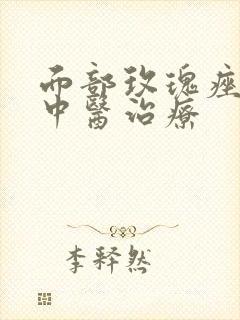 面部玫瑰痤
中醫治療
李释然